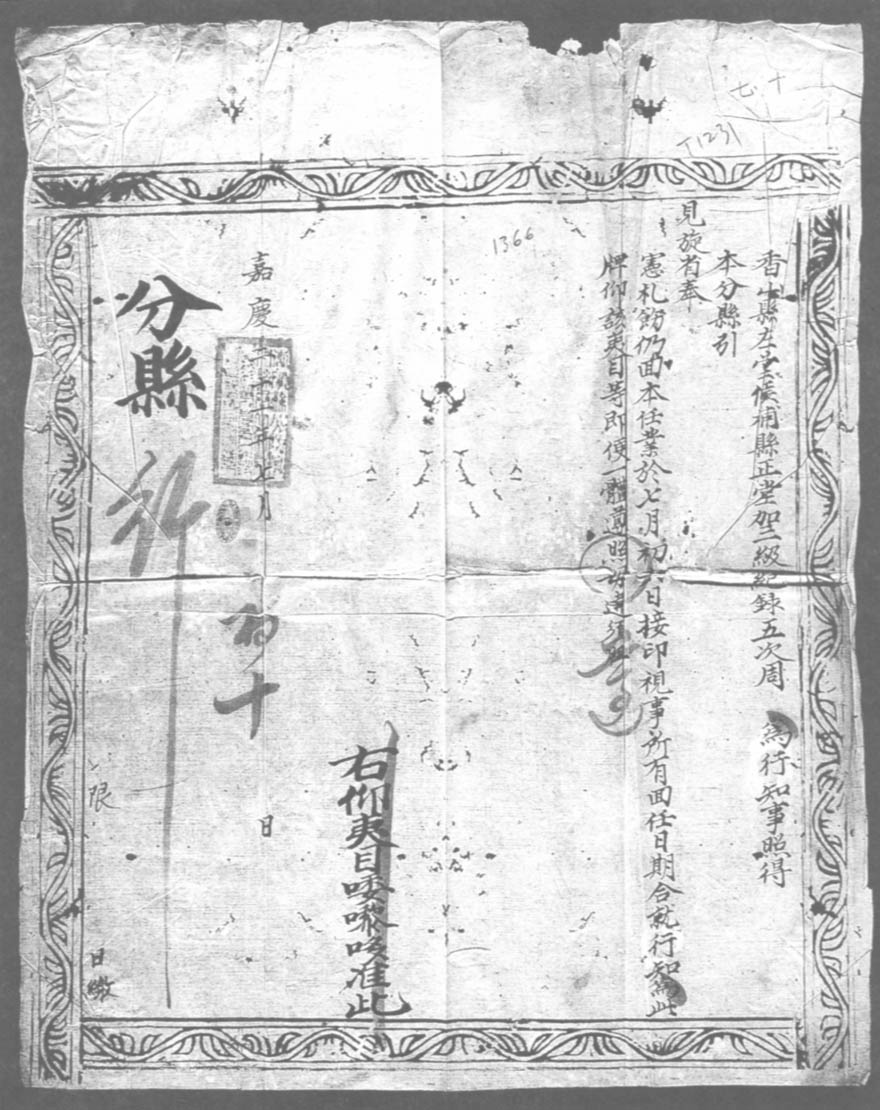 香山縣左堂候補縣正堂加二級紀錄五次周 為行知事照得
本分縣引
見旋省奉
憲札飭仍回本任業於七月初六日接印視事所有回任日期合就行知為此
牌仰該夷目等即便一體遵照毋違須
右仰夷目嚟哆准此
嘉慶二十二年七月 初十 日
分縣 行
限 日繳
七 十
T1231
1366